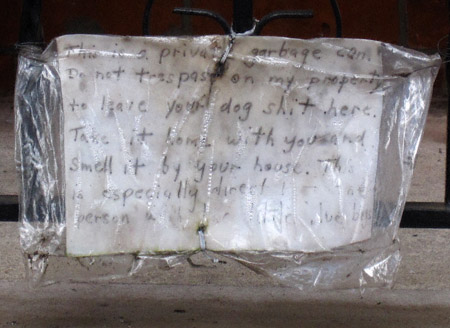 This is a private garbage can.
Do not trespass on my property
to leave your dog shit here.
Take it home with you and
smell it by your house. This
is especially direct
person